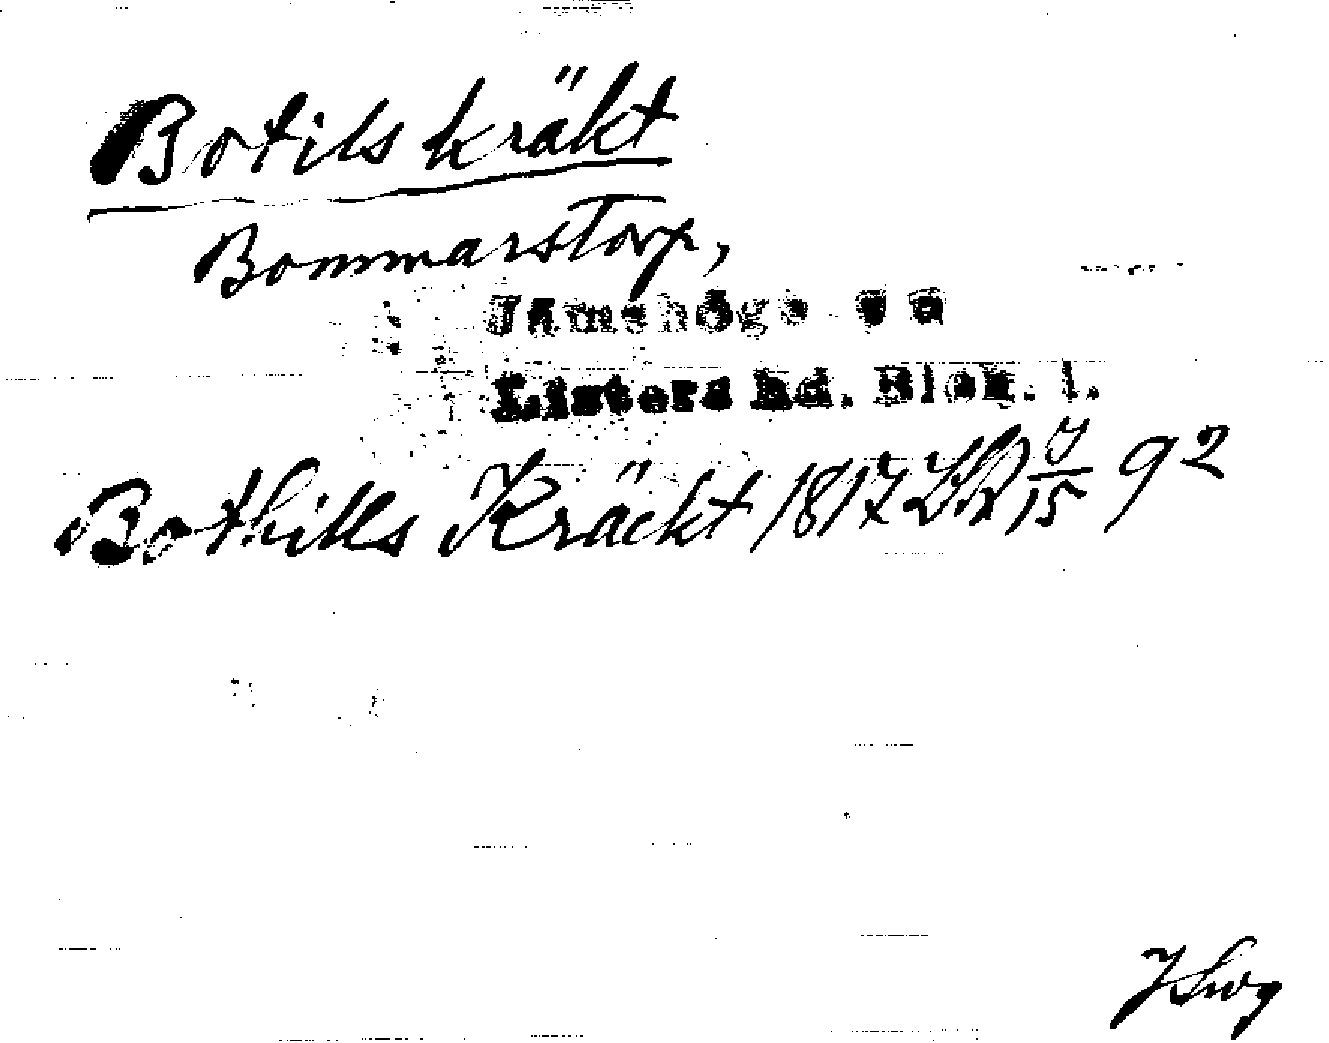 Botilskräkt
Bommarstorp,
Jämshögs sn
Listers hd. Blek. l.
Bothills Kräckt 1817 LK 7/15 92